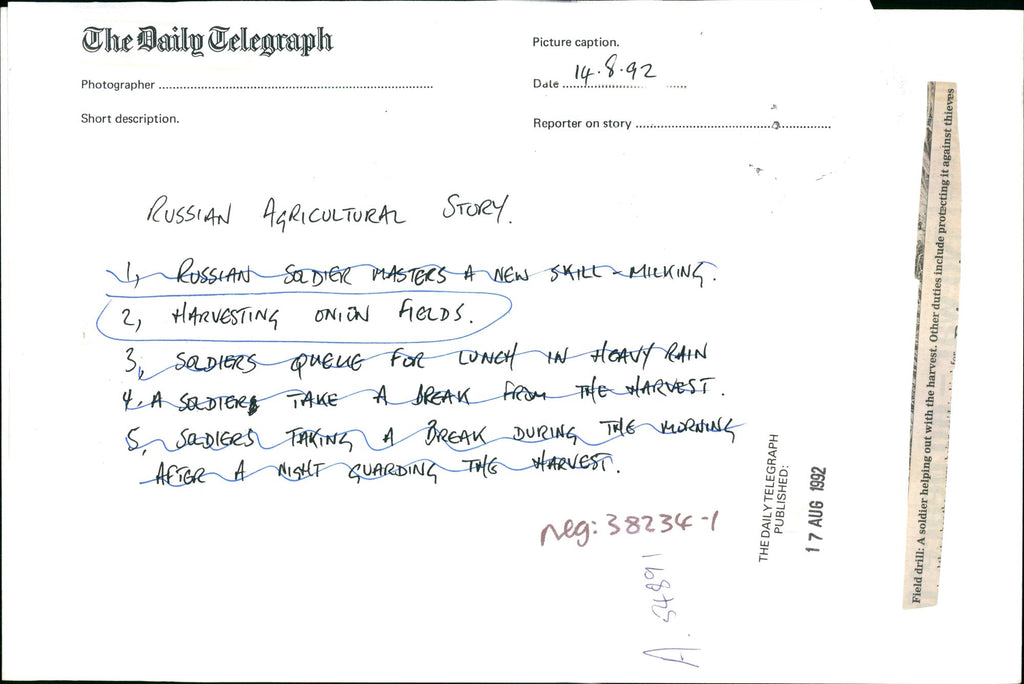 The Daily Telegraph
Picture caption.
Photographer
Date 14.8.92
Short description.
Reporter on story
RUSSIAN AGRICULTURAL STORY.
1, RUSSIAN SOLDIER MASTERS A NEW SKILL - MILKING.
2, HARVESTING ONION FIELDS.
3, SOLDIERS QUEUE FOR LUNCH IN HEAVY RAIN
4. A SOLDIER TAKE A BREAK FROM THE HARVEST.
5, SOLDIERS TAKING A BREAK DURING THE MORNING
AFTER A NIGHT GUARDING THE HARVEST.
neg: 38234-1
A. 54891
THE DAILY TELEGRAPH
PUBLISHED:
17 AUG 1992
Field drill: A soldier helping out with the harvest. Other duties include protecting it against thieves